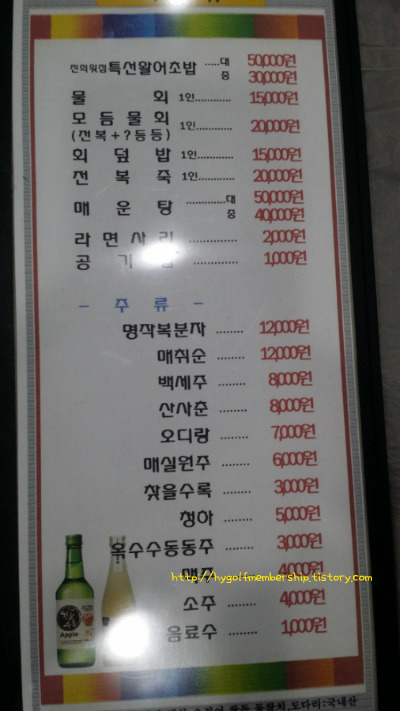 진희워접특선활어초밥 .....대 50,000원
중 30,000원
물 회 1인............ 15,000원
모 듬 물 회
(전복+?등등) 1인............ 20,000원
회 덮 밥 1인............ 15,000원
전 복 죽 1인............ 20,000원
매 운 탕 .............대 50,000원
중 40,000원
라 면 사 리 ............... 2,000원
공 기 ............. 1,000원
- 주 류 -
명작복분자 ........ 12,000원
매취순 ........ 12,000원
백세주 ........ 8,000원
산사춘 ........ 8,000원
오디랑 ........ 7,000원
매실원주 ........ 6,000원
찾을수록 ........ 3,000원
청하 ........ 5,000원
옥수수동동주 ........ 3,000원
맥주 4,000원
http://hygolfmembership.tistory.com
소주 ........ 4,000원
음료수 ........ 1,000원
Apple
도다리:국내산